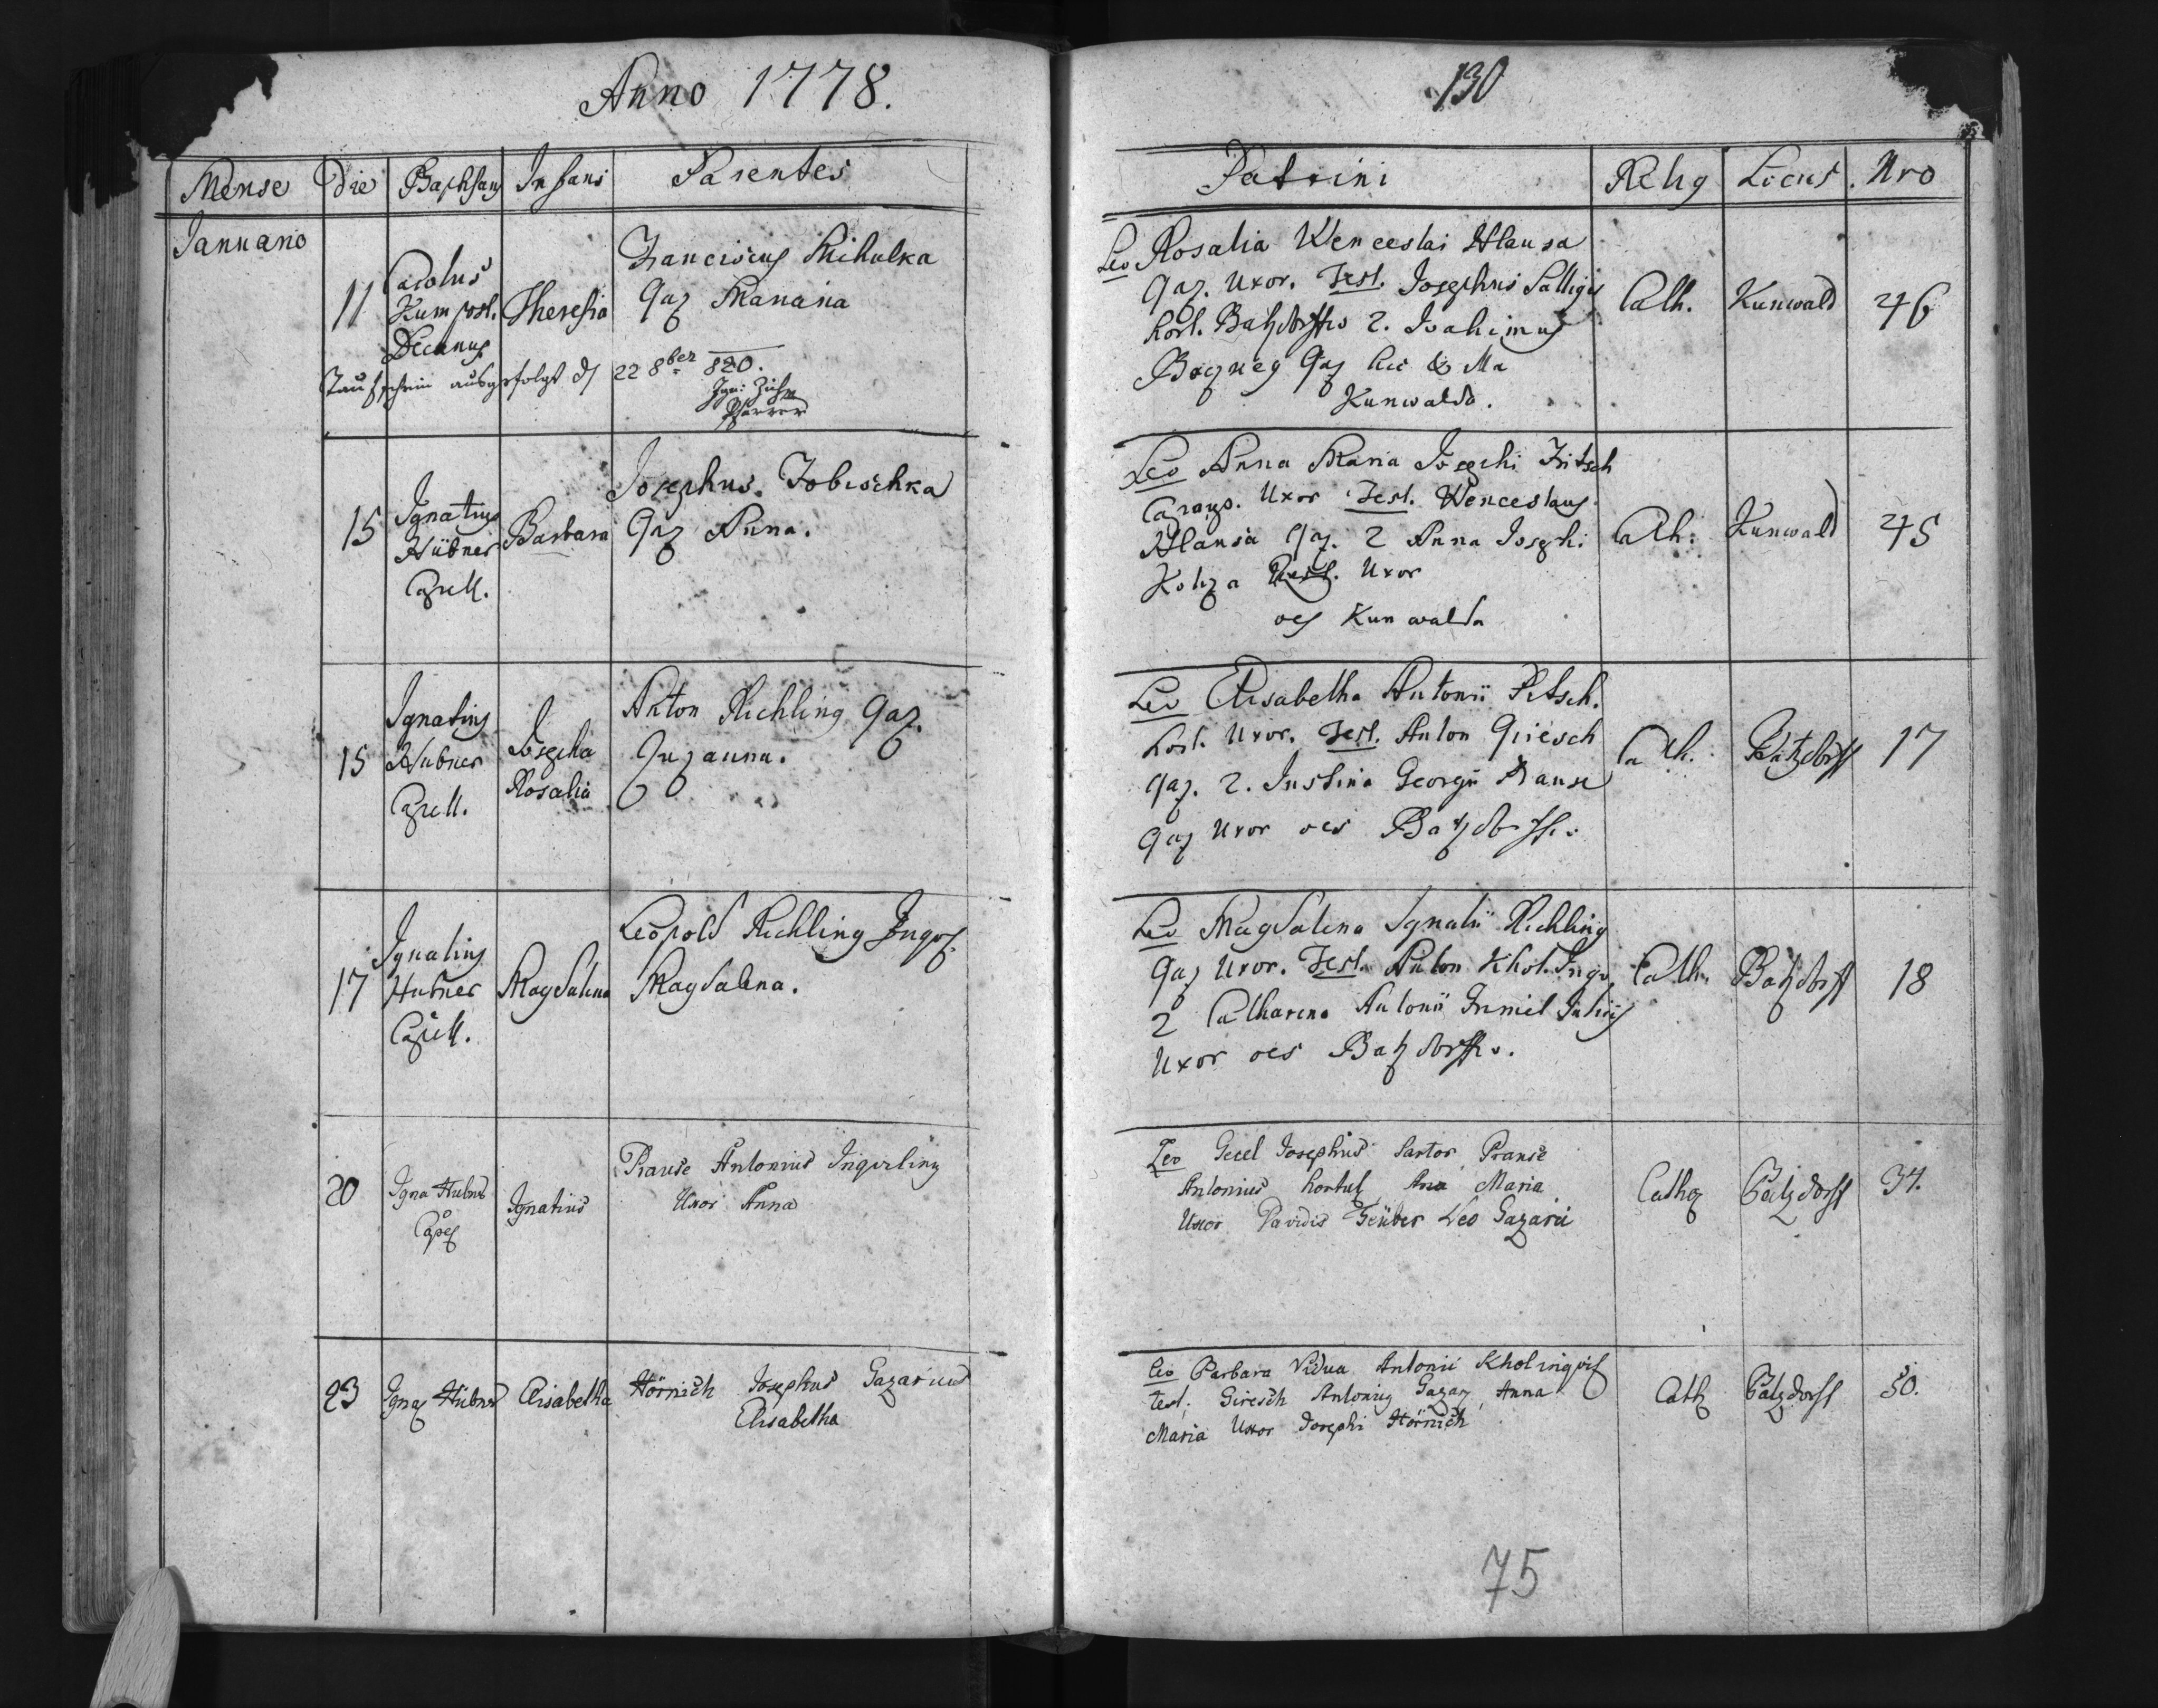 Anno 1778.
Mense die Baptisans Infans Parentes
Januario
11
Carolus
Kumpost.
Decanus
Theresia
Franciscus Mihulka
Gaz Mariana
Taufschein ausgefolgt d 22 8ber 820.
Pfarrer
15
Ignatius
Hübner
Capell.
Barbara
Josephus Tobischka
Gaz Anna.
15
Ignatius
Hubner
Capell.
Josepha
Rosalia
Anton Richling Gaz.
Suzanna.
17
Ignatius
Hubner
Capell.
Magdalena
Leopold Richling Inqv.
Magdalena.
20
Igna Hubner
Cape
Ignatius
Prause Antonius Inqvilin
Uxor Anna
23
Igna Hübner
Elisabetha
Hörnich Josephus Gazarius
Elisabetha
130
Patrini Relig Locus Nro
Leo Rosalia Wenceslai Hlausa
Gaz. Uxor. Test. Josephus
Hort. Batzdorffio 2. Joahimus
Gaz hic & Ma
Kunwalda.
Cath. Kunwald 46
Leo Anna Maria Josephi Fritsch
Uxor Test. Wenceslaus
Hlausa Gaz. 2 Anna Josephi
Koliza Uxor
oes Kunwalda
Cath. Kunwald 45
Leo Elisabetha Antonii Pitsch.
Hort. Uxor. Test. Anton Giresch
Gaz. 2. Justina Georgii Prause
Gaz Uxor oes Batzdorffio
Cath. Batzdorff 17
Leo Magdalena Ignatii Richling
Gaz Uxor. Test. Anton Khol. Inqv.
2 Catharina Antonii
Uxor oes Batzdorffio.
Cath. Batzdorff 18
Leo Josephus Sartor Prause
Antonius Hortul Ana Maria
Uxor Davidis Teüber Leo Gazarii
Cath Batzdorff 34.
Leo Barbara Vidua Antonii Khol inqvil
Test. Giresch Antonius Gazar Anna
Maria Uxor Josephi Hörnich
Cath Batzdorff 50.
75